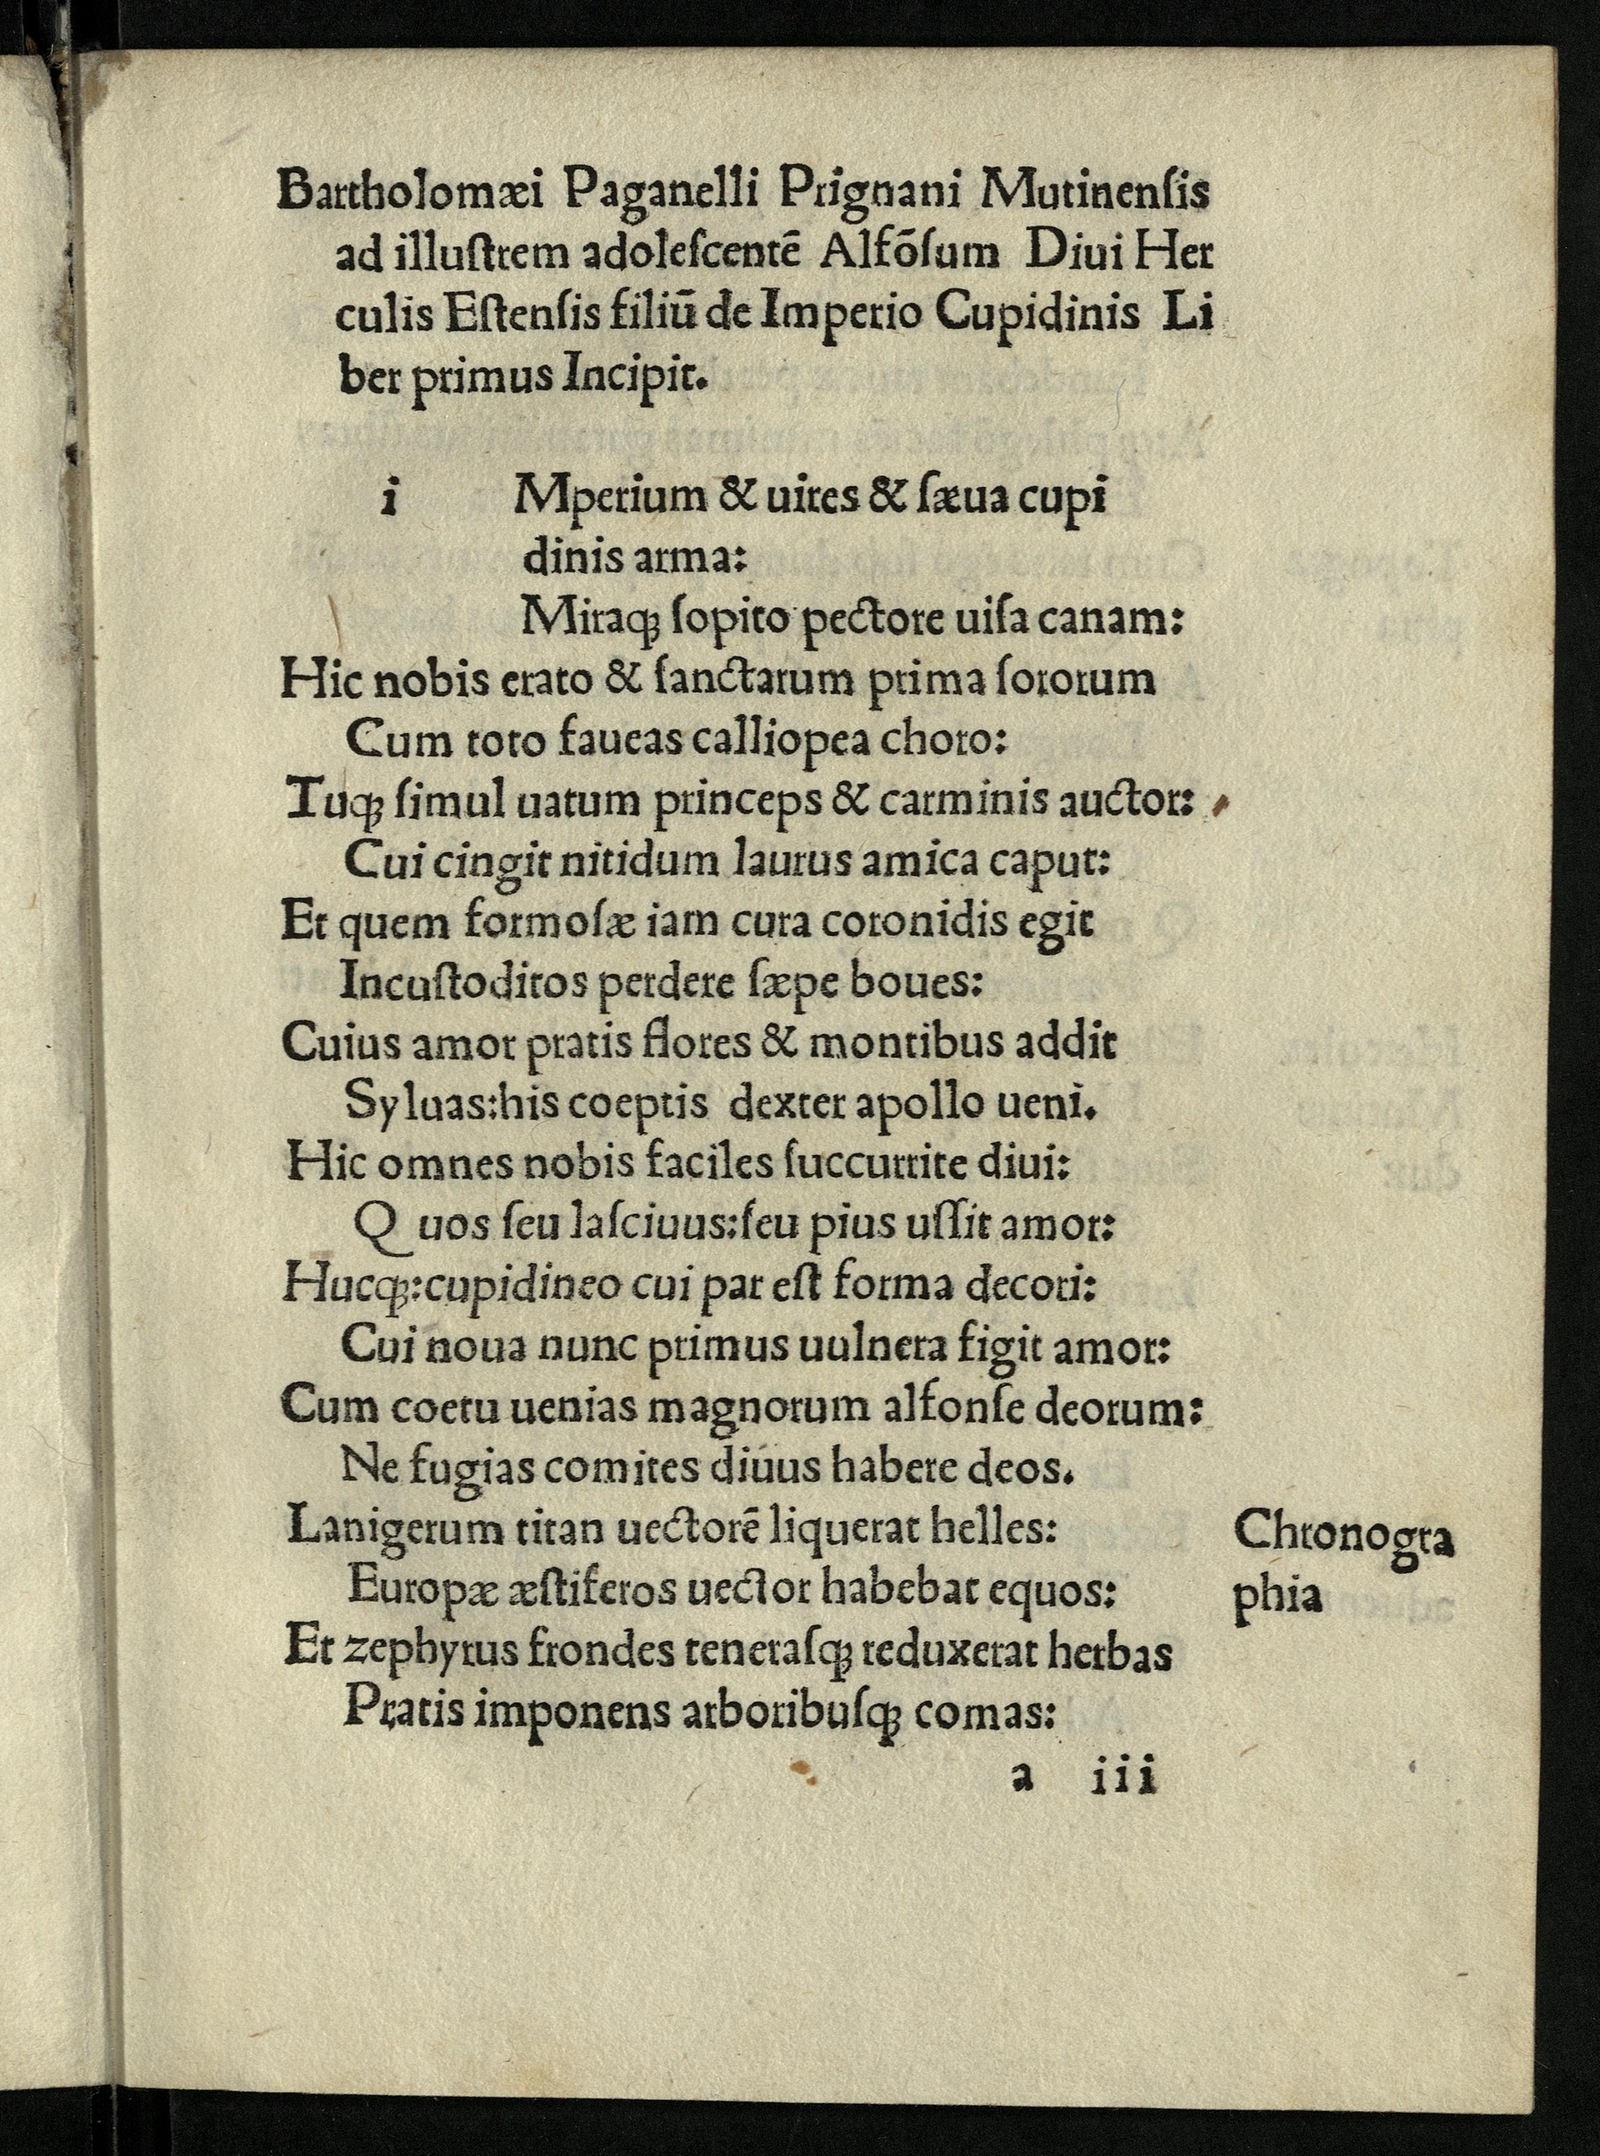 Bartholomæi Paganelli Prignani Mutinenſis
ad illuſtrem adoleſcentē Alfōſum Diui Her
culis Eſtenſis filiū de Imperio Cupidinis Li
ber primus Incipit.
i Mperium & uires & ſæua cupi
dinis arma:
Miraqꝫ ſopito pectore uiſa canam:
Hic nobis erato & ſanctarum prima ſororum
Cum toto faueas calliopea choro:
Tuqꝫ ſimul uatum princeps & carminis auctor:
Cui cingit nitidum laurus amica caput:
Et quem formoſæ iam cura coronidis egit
Incuſtoditos perdere ſæpe boues:
Cuius amor pratis flores & montibus addit
Syluas:his coeptis dexter apollo ueni.
Hic omnes nobis faciles ſuccurrite diui:
Q uos ſeu laſciuus:ſeu pius uſſit amor:
Hucqꝫ:cupidineo cui par eſt forma decori:
Cui noua nunc primus uulnera figit amor:
Cum coetu uenias magnorum alfonſe deorum:
Ne fugias comites diuus habere deos.
Lanigerum titan uectorē liquerat helles:
Chronogra
Europæ æſtiferos uector habebat equos:
phia
Et zephyrus frondes teneraſqꝫ reduxerat herbas
Pratis imponens arboribuſqꝫ comas:
a iii